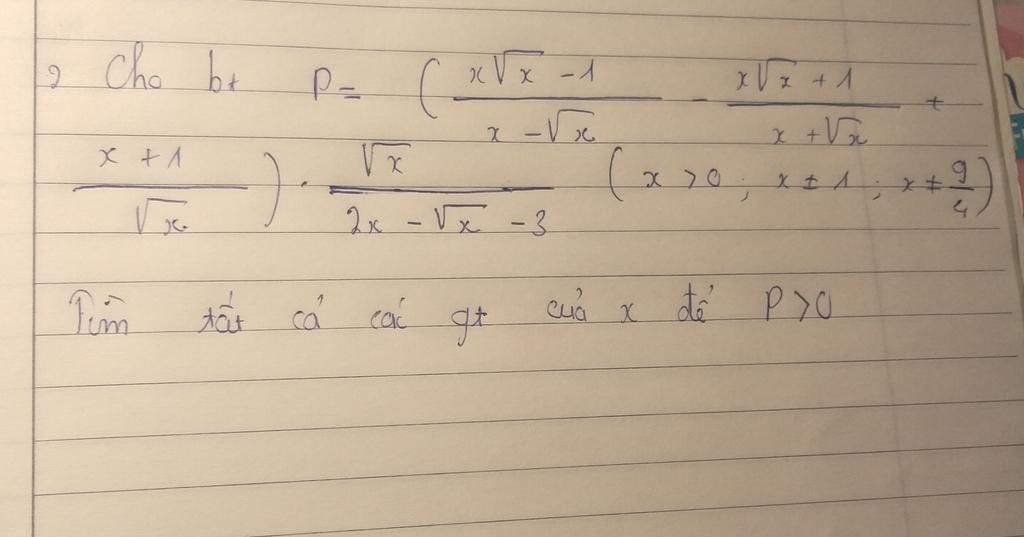 2 Cho bt P = ( \frac{x\sqrt{x} - 1}{x - \sqrt{x}} - \frac{x\sqrt{x} + 1}{x + \sqrt{x}} +
\frac{x + 1}{\sqrt{x}} ) . \frac{\sqrt{x}}{2x - \sqrt{x} - 3} ( x > 0 ; x ≠ 1 ; x ≠ \frac{9}{4} )
Tìm tất cả các gt của x để P > 0